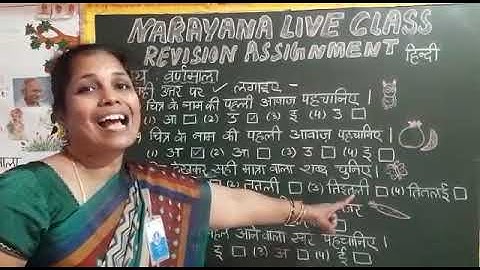 NARAYANA LIVE CLASS
REVISION ASSIGNMENT हिन्दी
वर्णमाला
सही उत्तर पर ✓ लगाइए -
चित्र के नाम की पहली आवाज़ पहचानिए ।
(1) आ (2) उ ✓ (3) इ (4) उ
चित्र के नाम की पहली आवाज़ पहचानिए ।
(1) अ ✓ (2) आ (3) उ (4) इ
देखकर सही मात्रा वाला शब्द चुनिए ।
(2) ततली (3) (4) तितलाई
आने वाला स्वर पहचानिए ।
इ (3) अ (4) ई